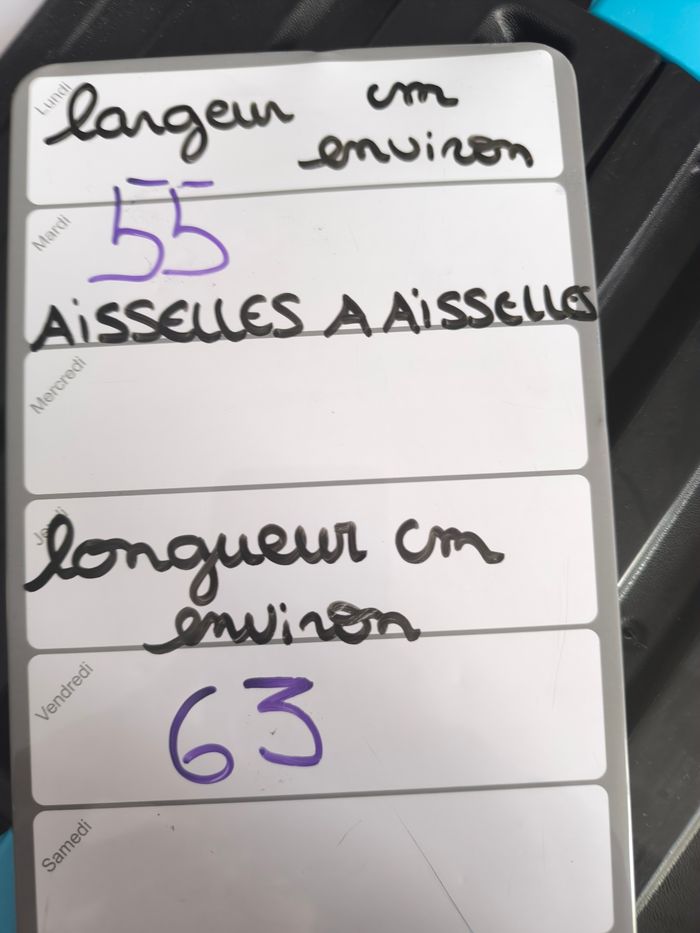 Lundi
largeur cm
environ
Mardi
55
AISSELLES A AISSELLES
Mercredi
Jeudi
longueur cm
environ
Vendredi
63
Samedi